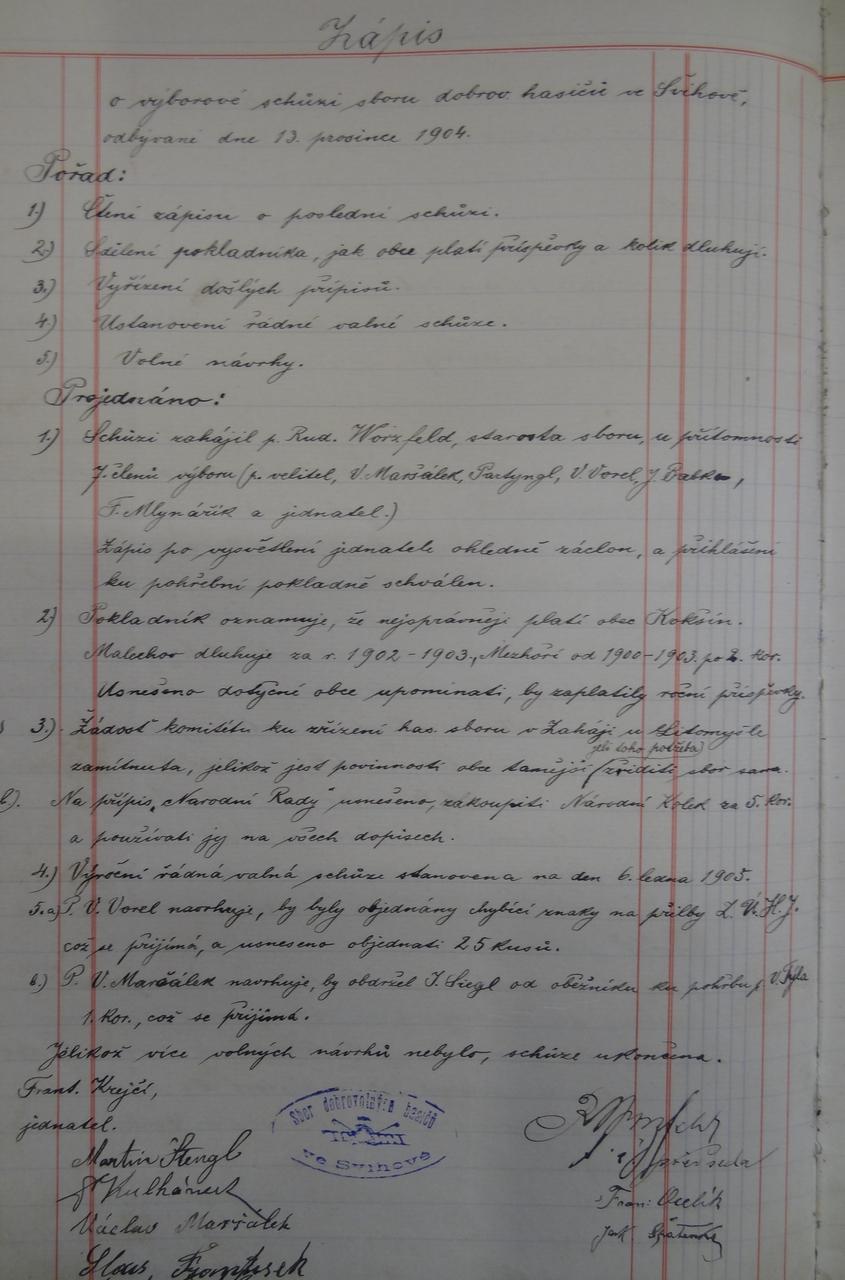 Zápis
o výborové schůzi sboru dobrov. hasičů ve Švihově,
odbývané dne 13. prosince 1904.
Pořad:
1.) Čtení zápisu o poslední schůzi.
2.) Sdělení pokladníka, jak obce platí příspěvky a kolik dluhují.
3.) Vyřízení došlých přípisů.
4.) Ustanovení řádné valné schůze.
5.) Volné návrhy.
Projednáno:
1.) Schůzi zahájil p. Rud. Worzfeld, starosta sboru, u přítomnosti
7. členů výboru (p. velitel, V. Maršálek, Partyngl, V. Vorel, J. Babka,
F. Mlynářík a jednatel.)
Zápis po vysvětlení jednatele ohledně záclon, a přihlášení
ku pohřební pokladně schválen.
2.) Pokladník oznamuje, že nejsprávněji platí obec Kokšín.
Malechov dluhuje za r. 1902-1903, Mezhoří od 1900-1903. po 2. kor.
Usnešeno dotyčné obce upomínati, by zaplatily roční příspěvky.
3.) Žádost komitétu ku zřízení has. sboru v Zaháji u Litomyšle
jeli toho potřeba)
zamítnuta, jelikož jest povinností obce tamější (zříditi sbor sama.
b). Na přípis „Narodní Rady" usnešeno, zakoupiti Národní Kolek za 5. kor.
a používati jej na všech dopisech.
4.) Výroční řádná valná schůze stanovena na den 6. ledna 1905.
5.a) P. V. Vorel navrhuje, by byly objednány chybící znaky na přilby Z. Ú. H. J.
což se přijímá, a usneseno objednati 25 kusů.
b.) P. V. Maršálek navrhuje, by obdržel J. Siegl od oběžníku ku pohřbu p. V.
1. kor., což se přijímá.
Jelikož více volných návrhů nebylo, schůze ukončena.
Frant. Krejčí,
jednatel.
Martin Stengl
Kulhánek
Václav Maršálek
František
Sbor dobrovolných hasičů
ve Švihově
předseda
Fran: Ocelík